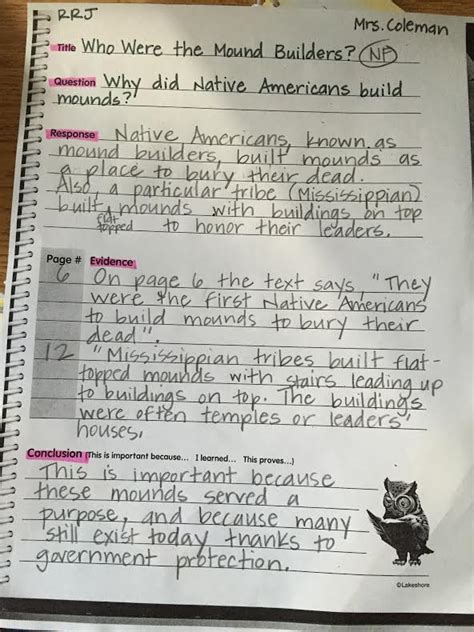 RRJ
Mrs. Coleman
Title Who Were the Mound Builders? NF
Question Why did Native Americans build
mounds?
Response Native Americans, known as
mound builders, built mounds as
a place to bury their dead.
Also, a particular tribe (Mississippian)
built flat topped mounds with buildings on top
to honor their leaders.
Page # Evidence
6 On page 6 the text says, "They
were the first Native Americans
to build mounds to bury their
dead".
12 "Mississippian tribes built flat-
topped mounds with stairs leading up
to buildings on top. The buildings
were often temples or leaders'
houses.
Conclusion (This is important because... I learned... This proves...)
This is important because
these mounds served a
purpose, and because many
still exist today thanks to
government protection.
©Lakeshore